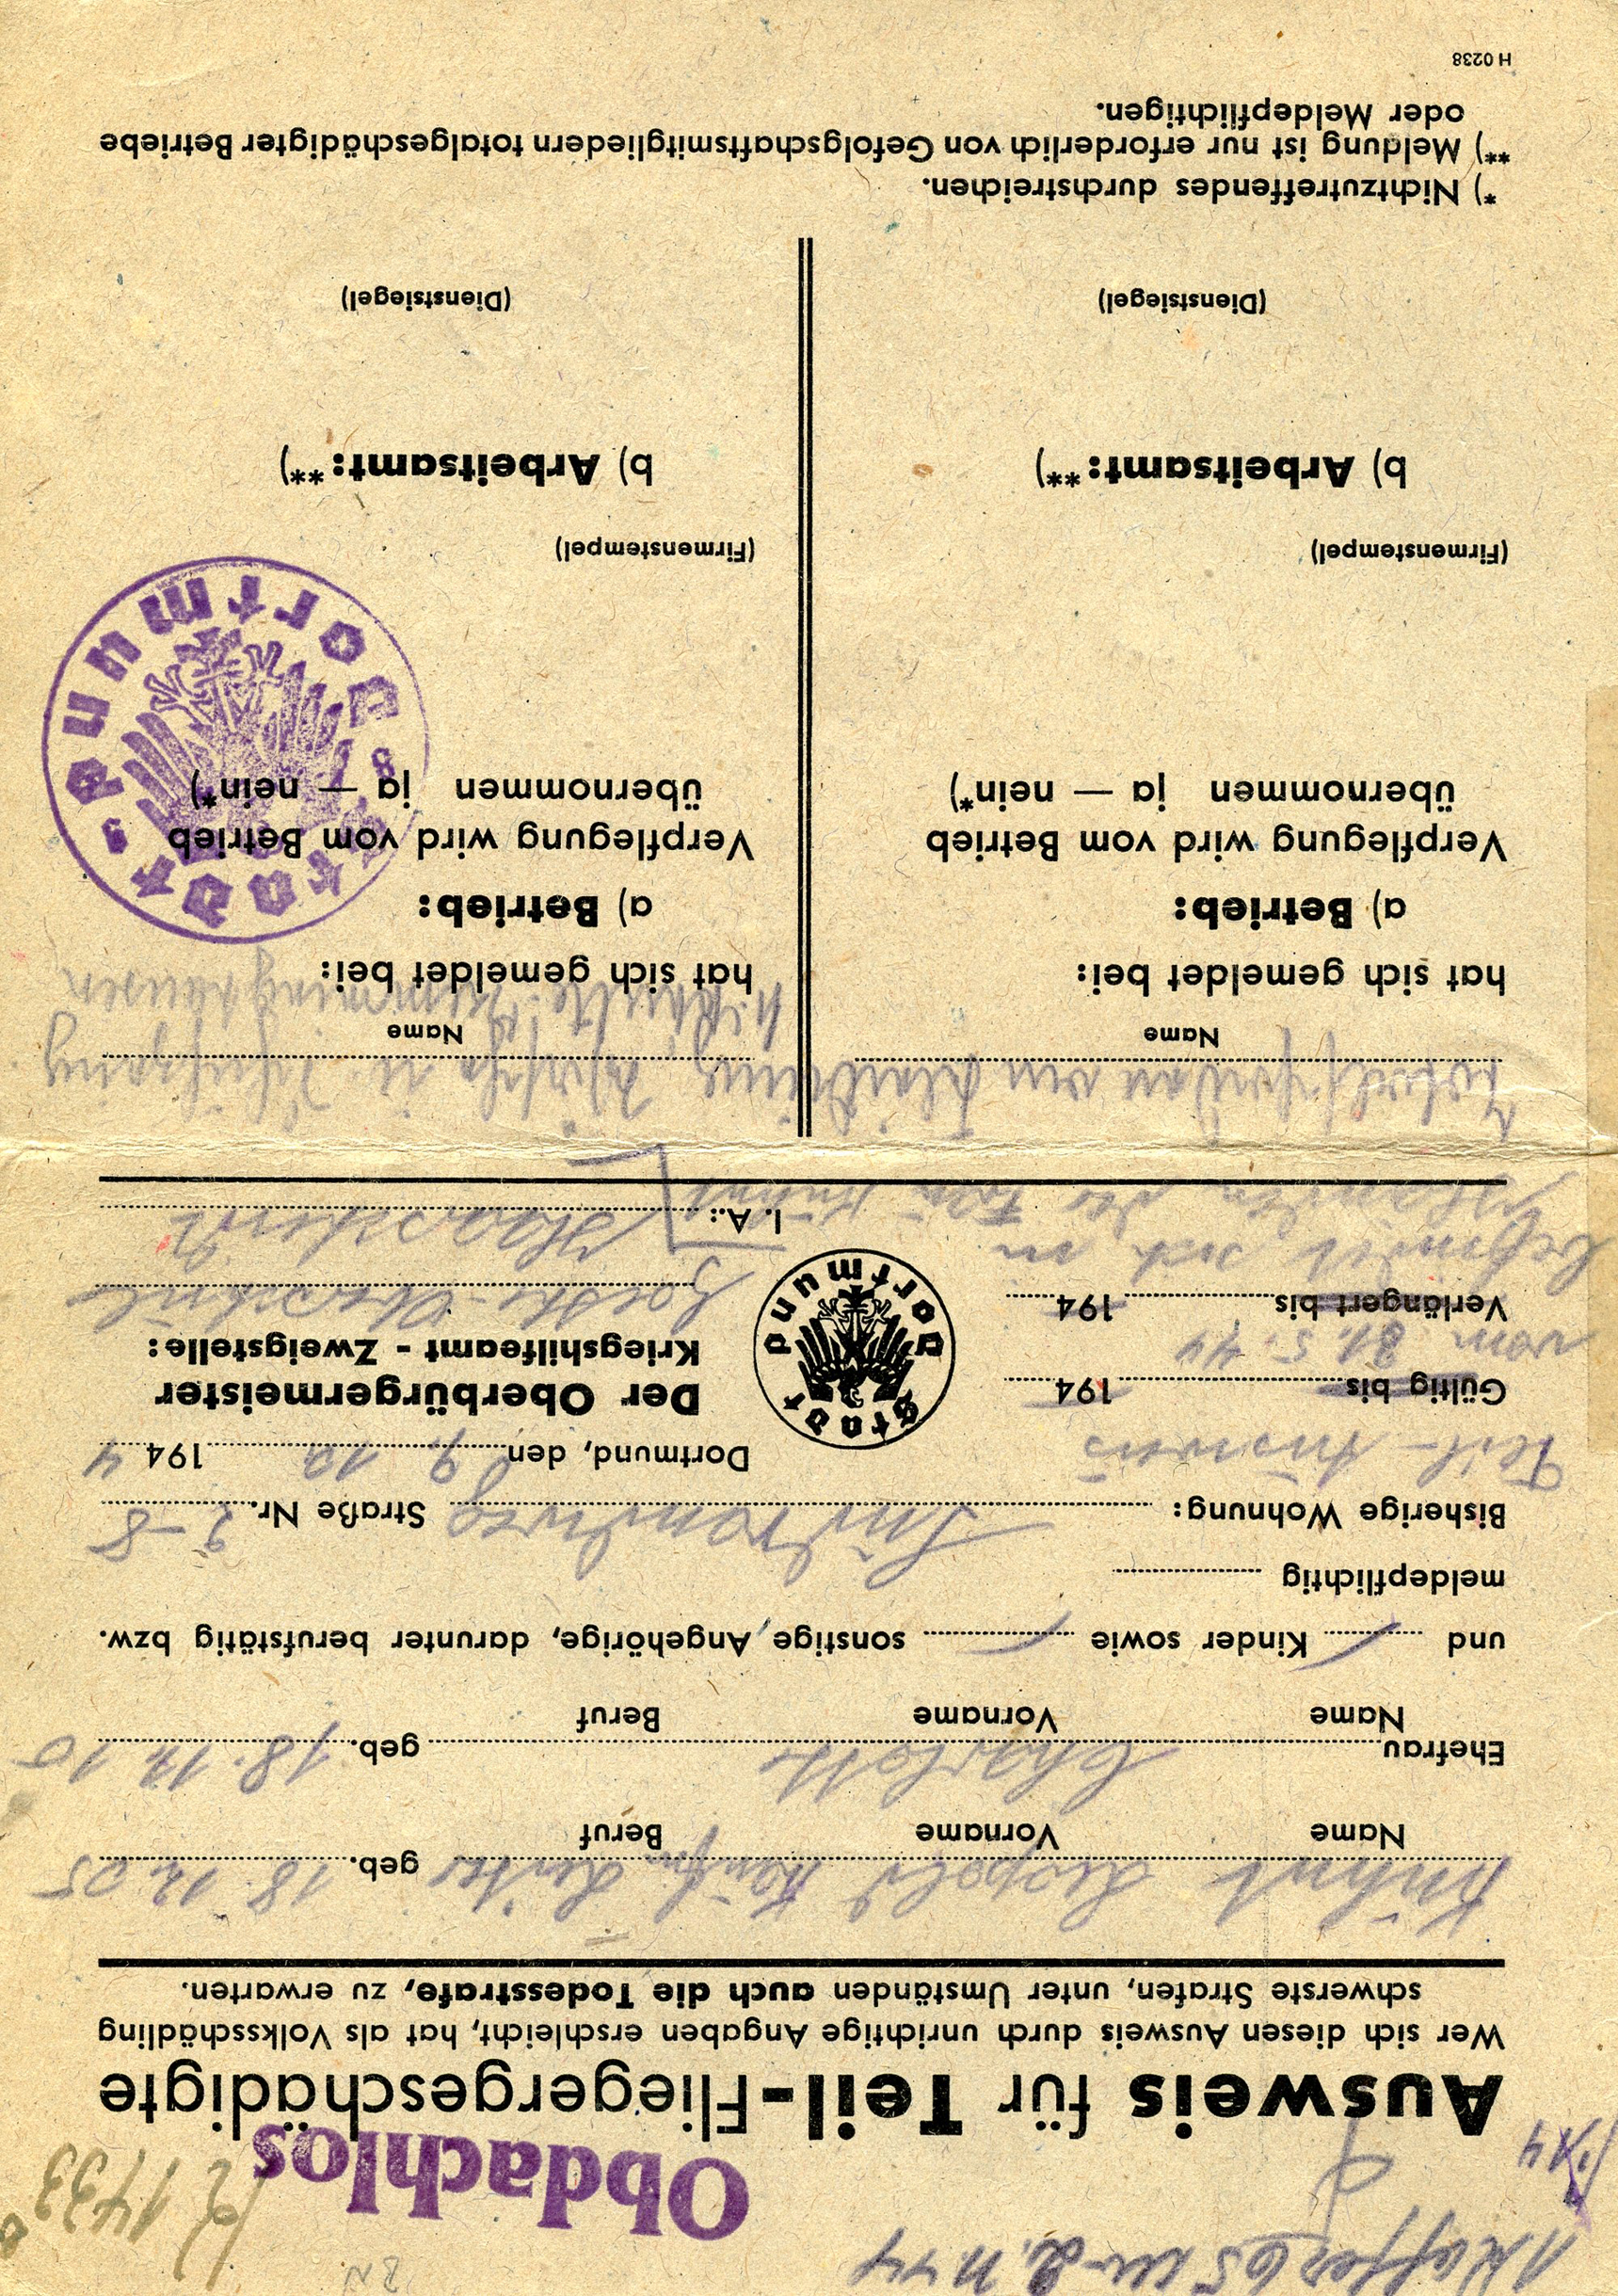 1 Koffer 65 am 2. 11. 44
BN
1433
Obdachlos
Ausweis für Teil-Fliegergeschädigte
Wer sich diesen Ausweis durch unrichtige Angaben erschleicht, hat als Volksschädling
schwerste Strafen, unter Umständen auch die Todesstrafe, zu erwarten.
Kühnt Leopold Kaufm. Leiter geb. 18. 12. 05
Name Vorname Beruf
Ehefrau Charlotte geb. 18. 12. 10
Name Vorname Beruf
und / Kinder sowie / sonstige Angehörige, darunter berufstätig bzw.
meldepflichtig
Bisherige Wohnung: Südrandweg Straße Nr. 2-8
Teil-Ausweis
Dortmund, den 9. 10. 1944
Gültig bis 194
vom 31. 5. 44
Verlängert bis 194
befindet sich in
Händen der Frau Kühnt
Stadt Dortmund
Der Oberbürgermeister
Kriegshilfeamt - Zweigstelle:
Goethe-Oberschule
I. A.:
Totalschaden an Kleidung, Wäsche u. Schuhzeug
Name
hat sich gemeldet bei:
a) Betrieb:
Verpflegung wird vom Betrieb
übernommen ja — nein*)
(Firmenstempel)
b) Arbeitsamt: **)
(Dienstsiegel)
Name
hat sich gemeldet bei:
a) Betrieb:
Verpflegung wird vom Betrieb
übernommen ja — nein*)
Stadt Dortmund
(Firmenstempel)
b) Arbeitsamt: **)
(Dienstsiegel)
*) Nichtzutreffendes durchstreichen.
**) Meldung ist nur erforderlich von Gefolgschaftsmitgliedern totalgeschädigter Betriebe
oder Meldepflichtigen.
H 0238